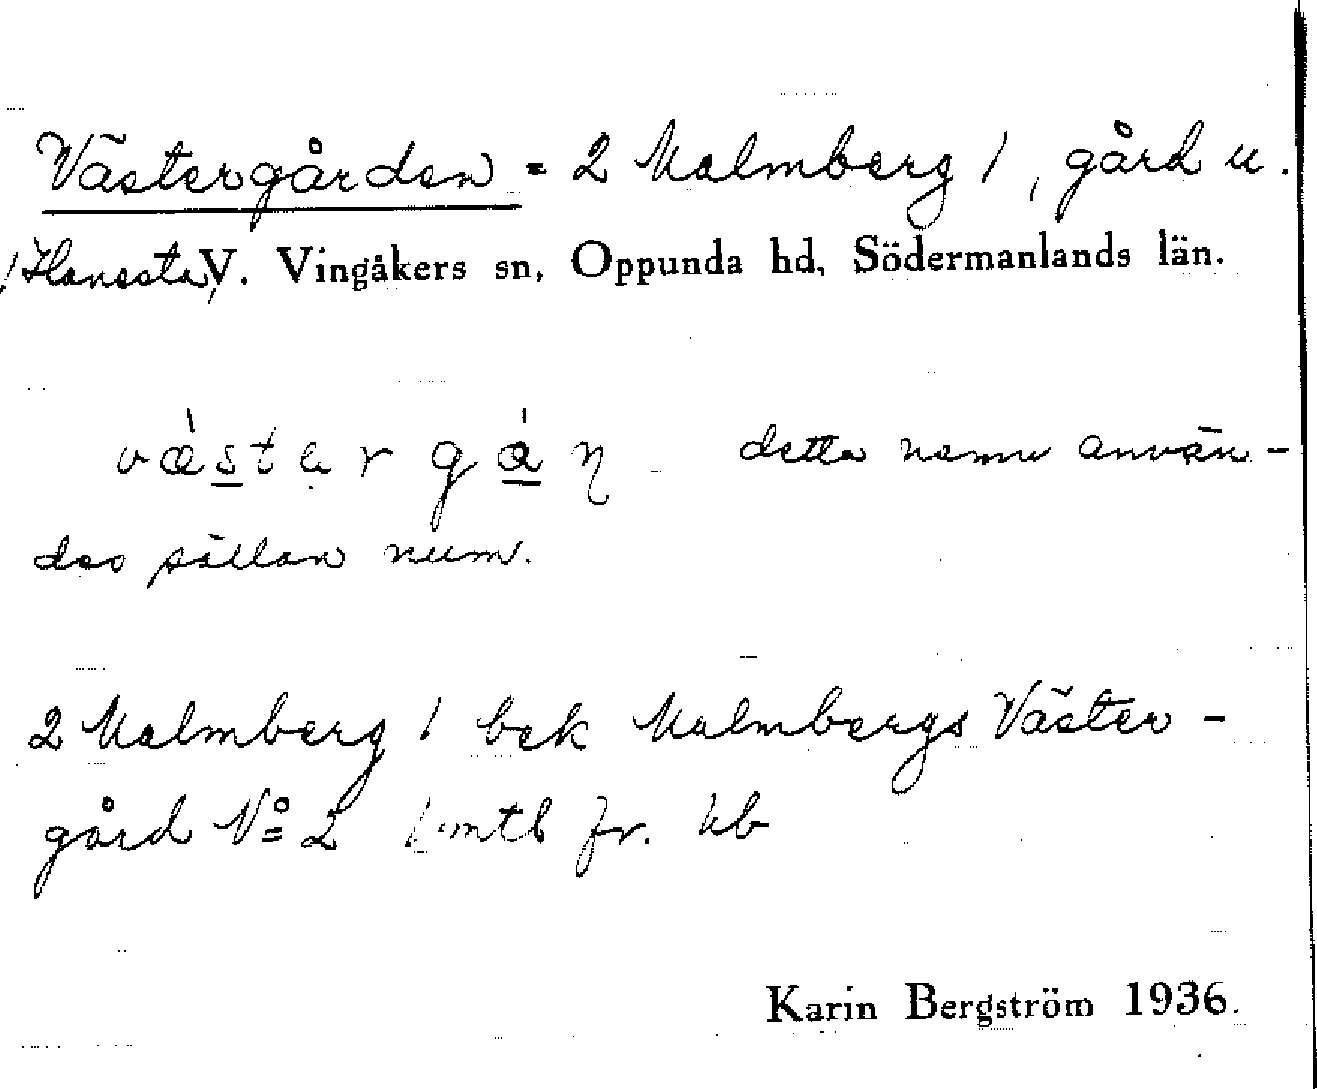 Västergården = 2 Malmberg 1, gård u.
Hansta, V. Vingåkers sn, Oppunda hd, Södermanlands län.
detta namn använ-
des sällan num.
2 Malmberg 1 bek Malmbergs Väster-
gård No 2 mtl fr. kb
Karin Bergström 1936.